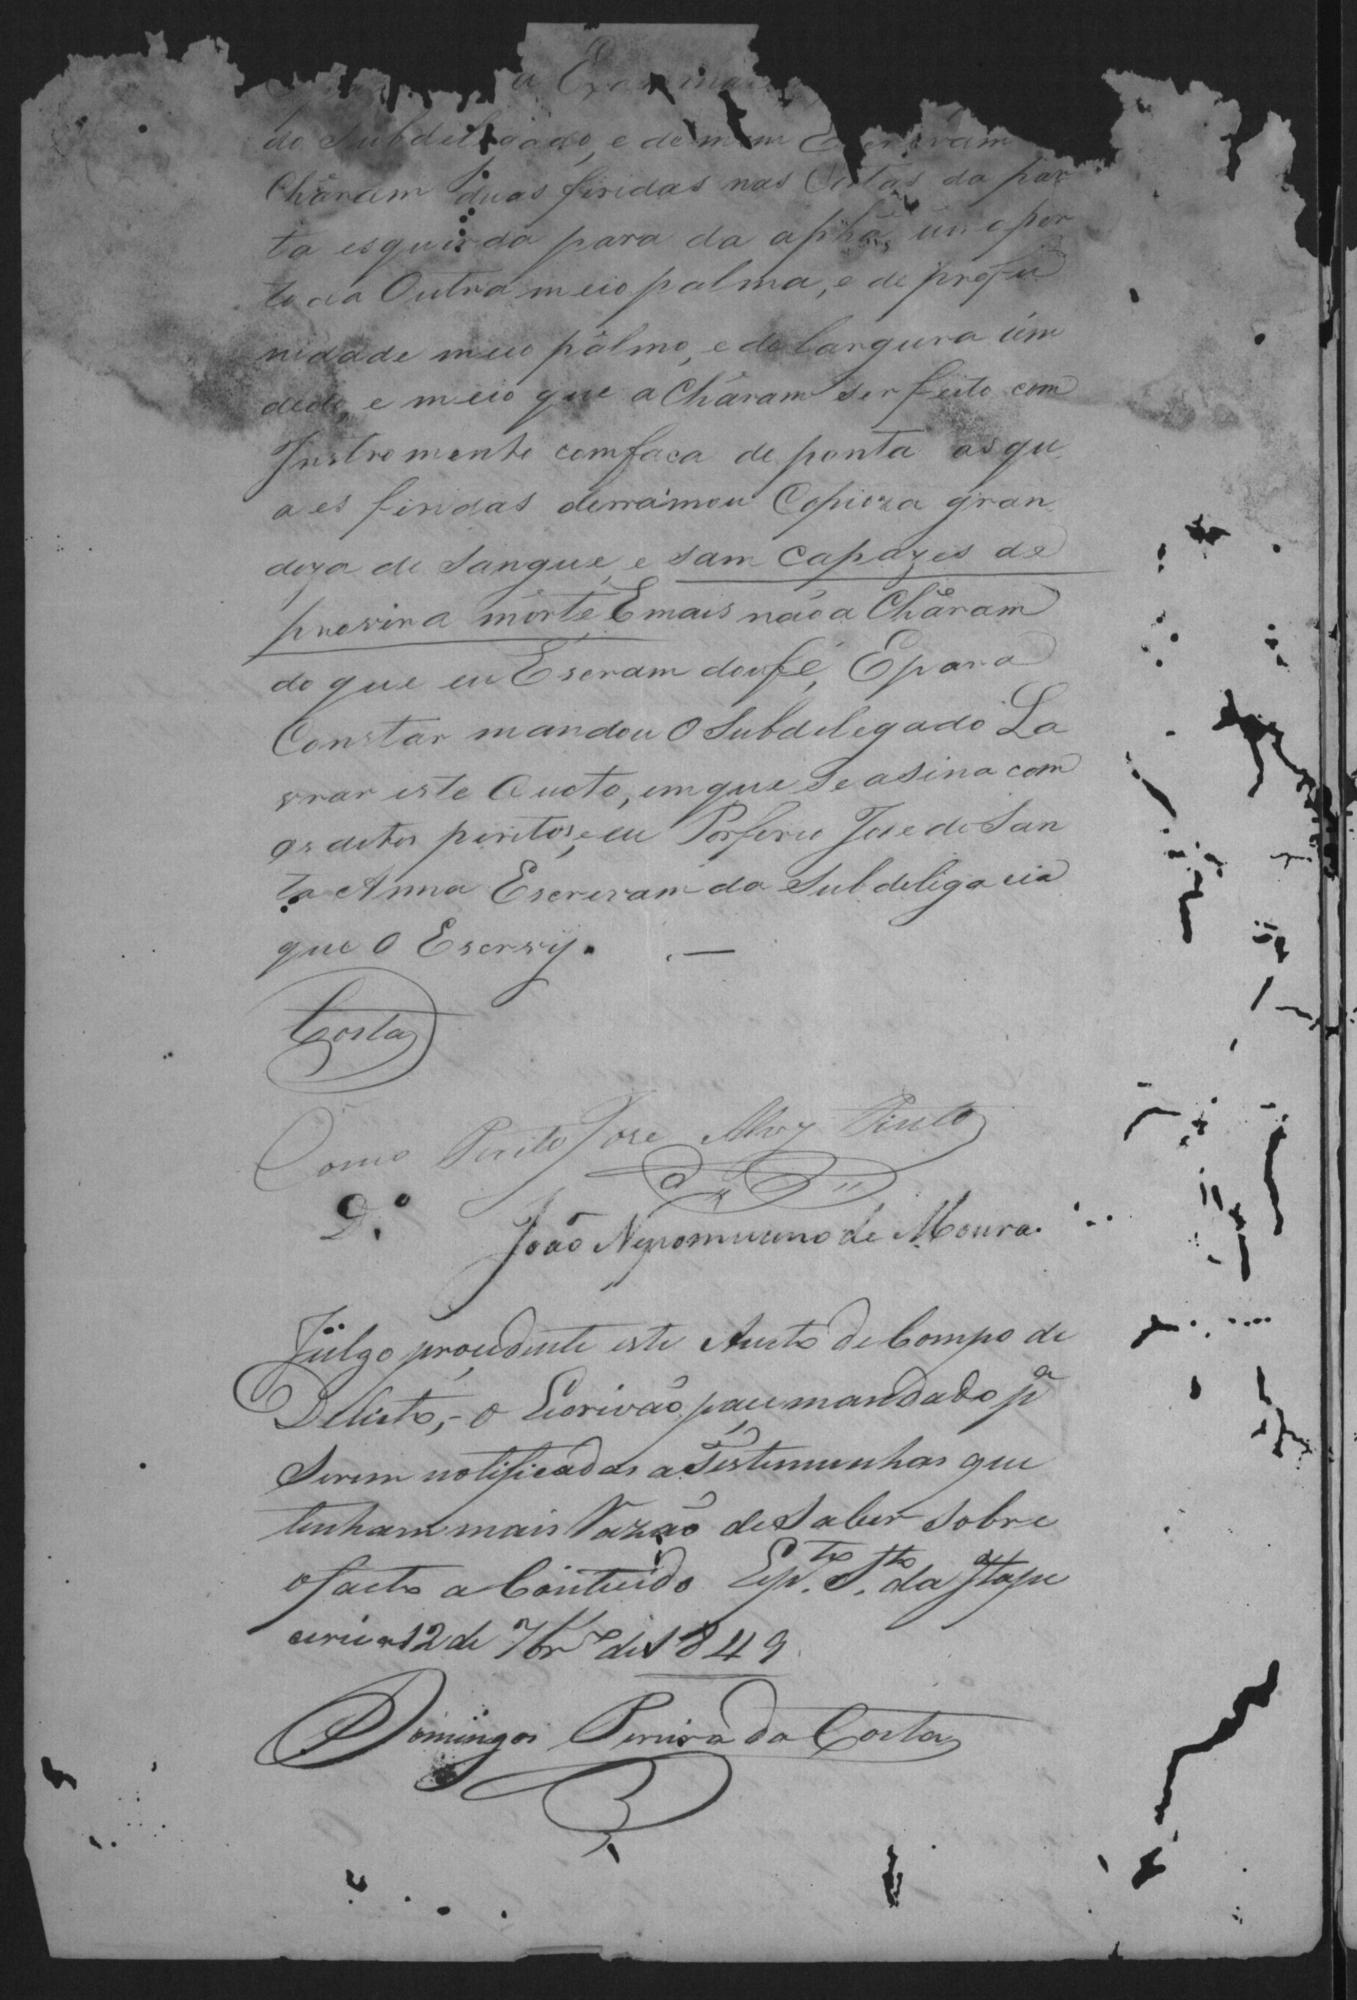 a Examinar
do Subdelegado, e de mim Escrivam
Chàram duas firidas nas Costas da par
ta esquirda para da aphá, um e por
to da Outra meio palma, e de profu
nidade meio pálmo, e de largura úm
dedo, e meio que a Cháram ser feito com
Instromento com faca de ponta as qu
aes firidas derrámou Copioza gran
deza de Sangue, e sam Capazes de
provira mórte E mais não a Cháram
do que eu Escram dou fé, E para
Constar mandou O Subdelegado La
vrar este Aucto, em que Se asina com
os ditos piritos, e eu Porfirio Joze de San
ta Anna Escrivam da Subdeligacia
que O Escrvy. —
Costa
Como Perito Jose Alvz Pinto
D.º João Nepomuceno de Moura.
Julgo procedente este Aucto de Compo de
Delicto, - O Escrivão passe mandado pª
Serem notificadas as Testemunhas que
tenham mais Razão de Saber sobre
o facto a Contecido Esp.to S.to da Itape
cerica 12 de 7brº de 1849
Domingos Pereira da Costa